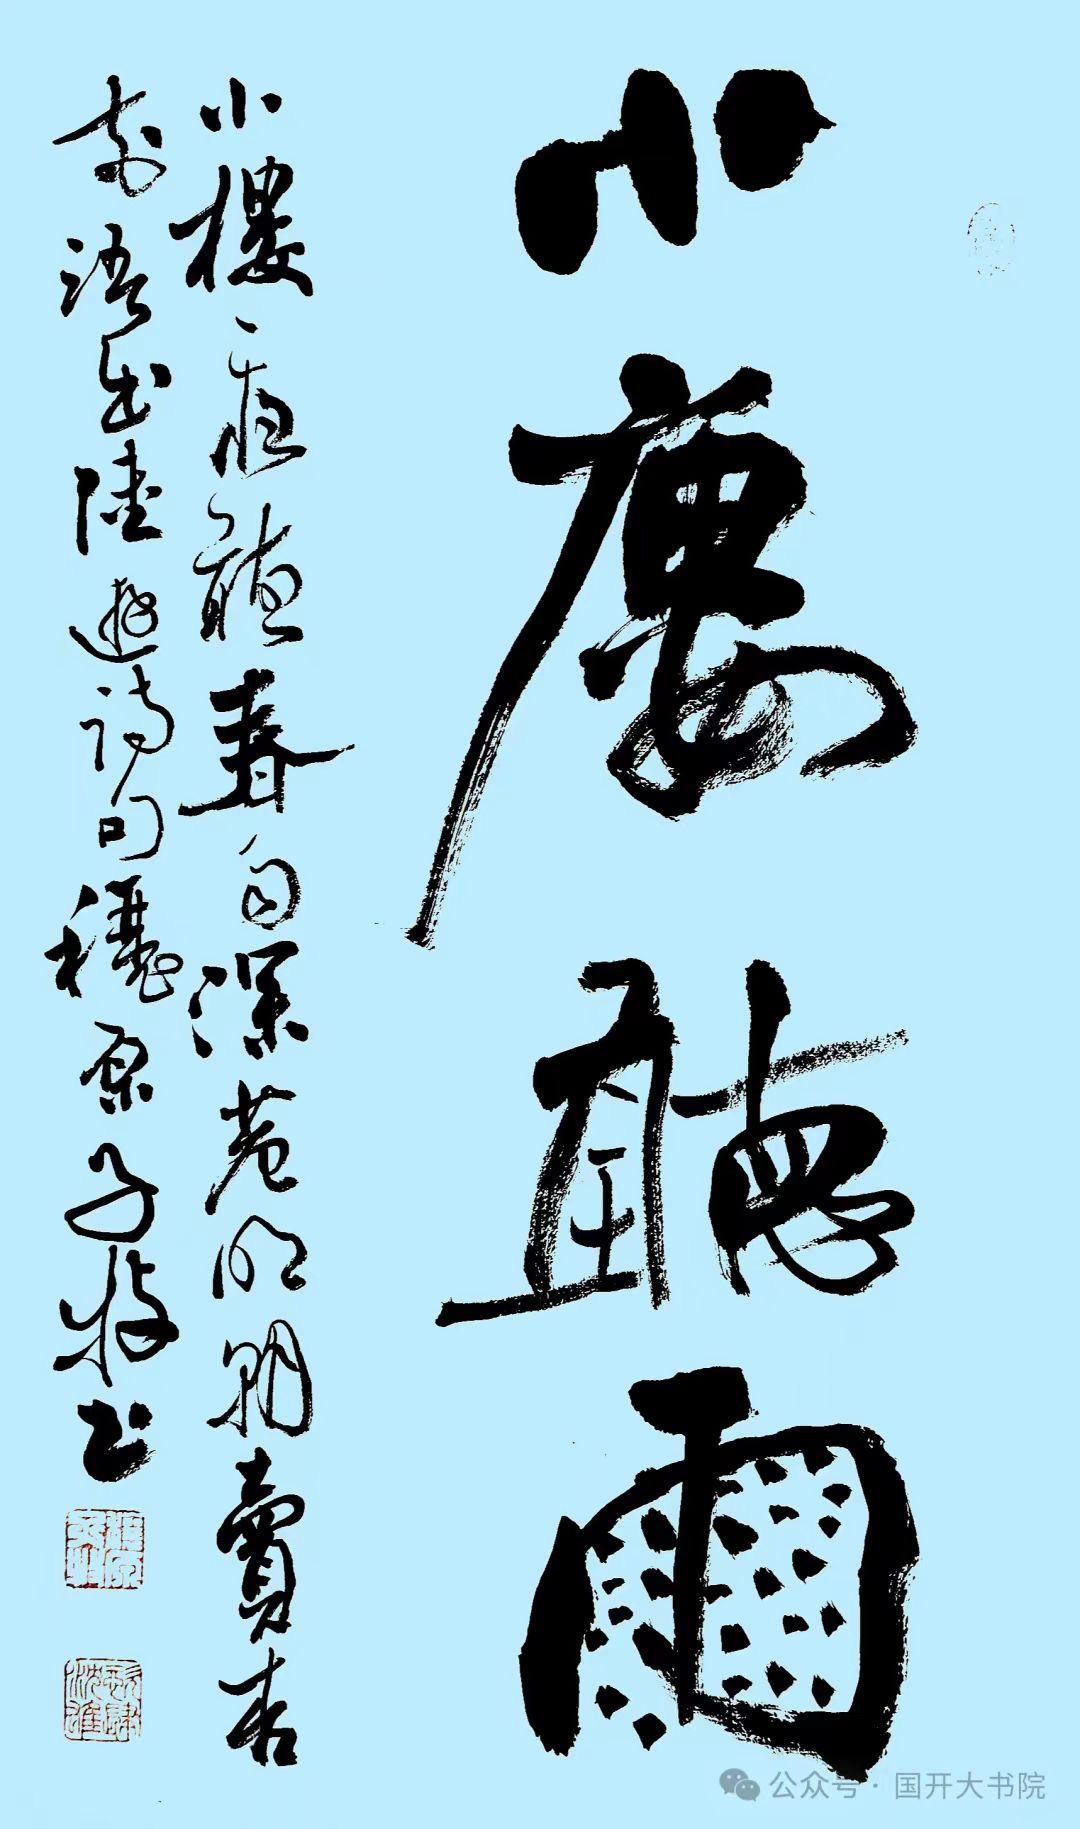 小廔聽雨
小樓一夜聽春雨深巷明朝賣杏
花語出陸遊詩句穰原子牧书
公众号·国开大书院